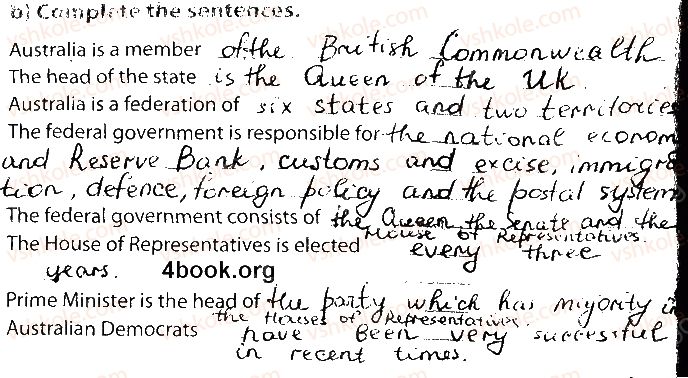 b) Complete the sentences.
Australia is a member of the British Commonwealth
The head of the state is the Queen of the UK.
Australia is a federation of six states and two territories
The federal government is responsible for the national econom
and Reserve Bank, customs and excise, immigra
tion, defence, foreign policy and the postal system
The federal government consists of the Queen, the senate and the
House of Representatives
The House of Representatives is elected every three
years. 4book.org
Prime Minister is the head of the party which has majority in
the Houses of Representatives.
Australian Democrats have been very successful
in recent times.